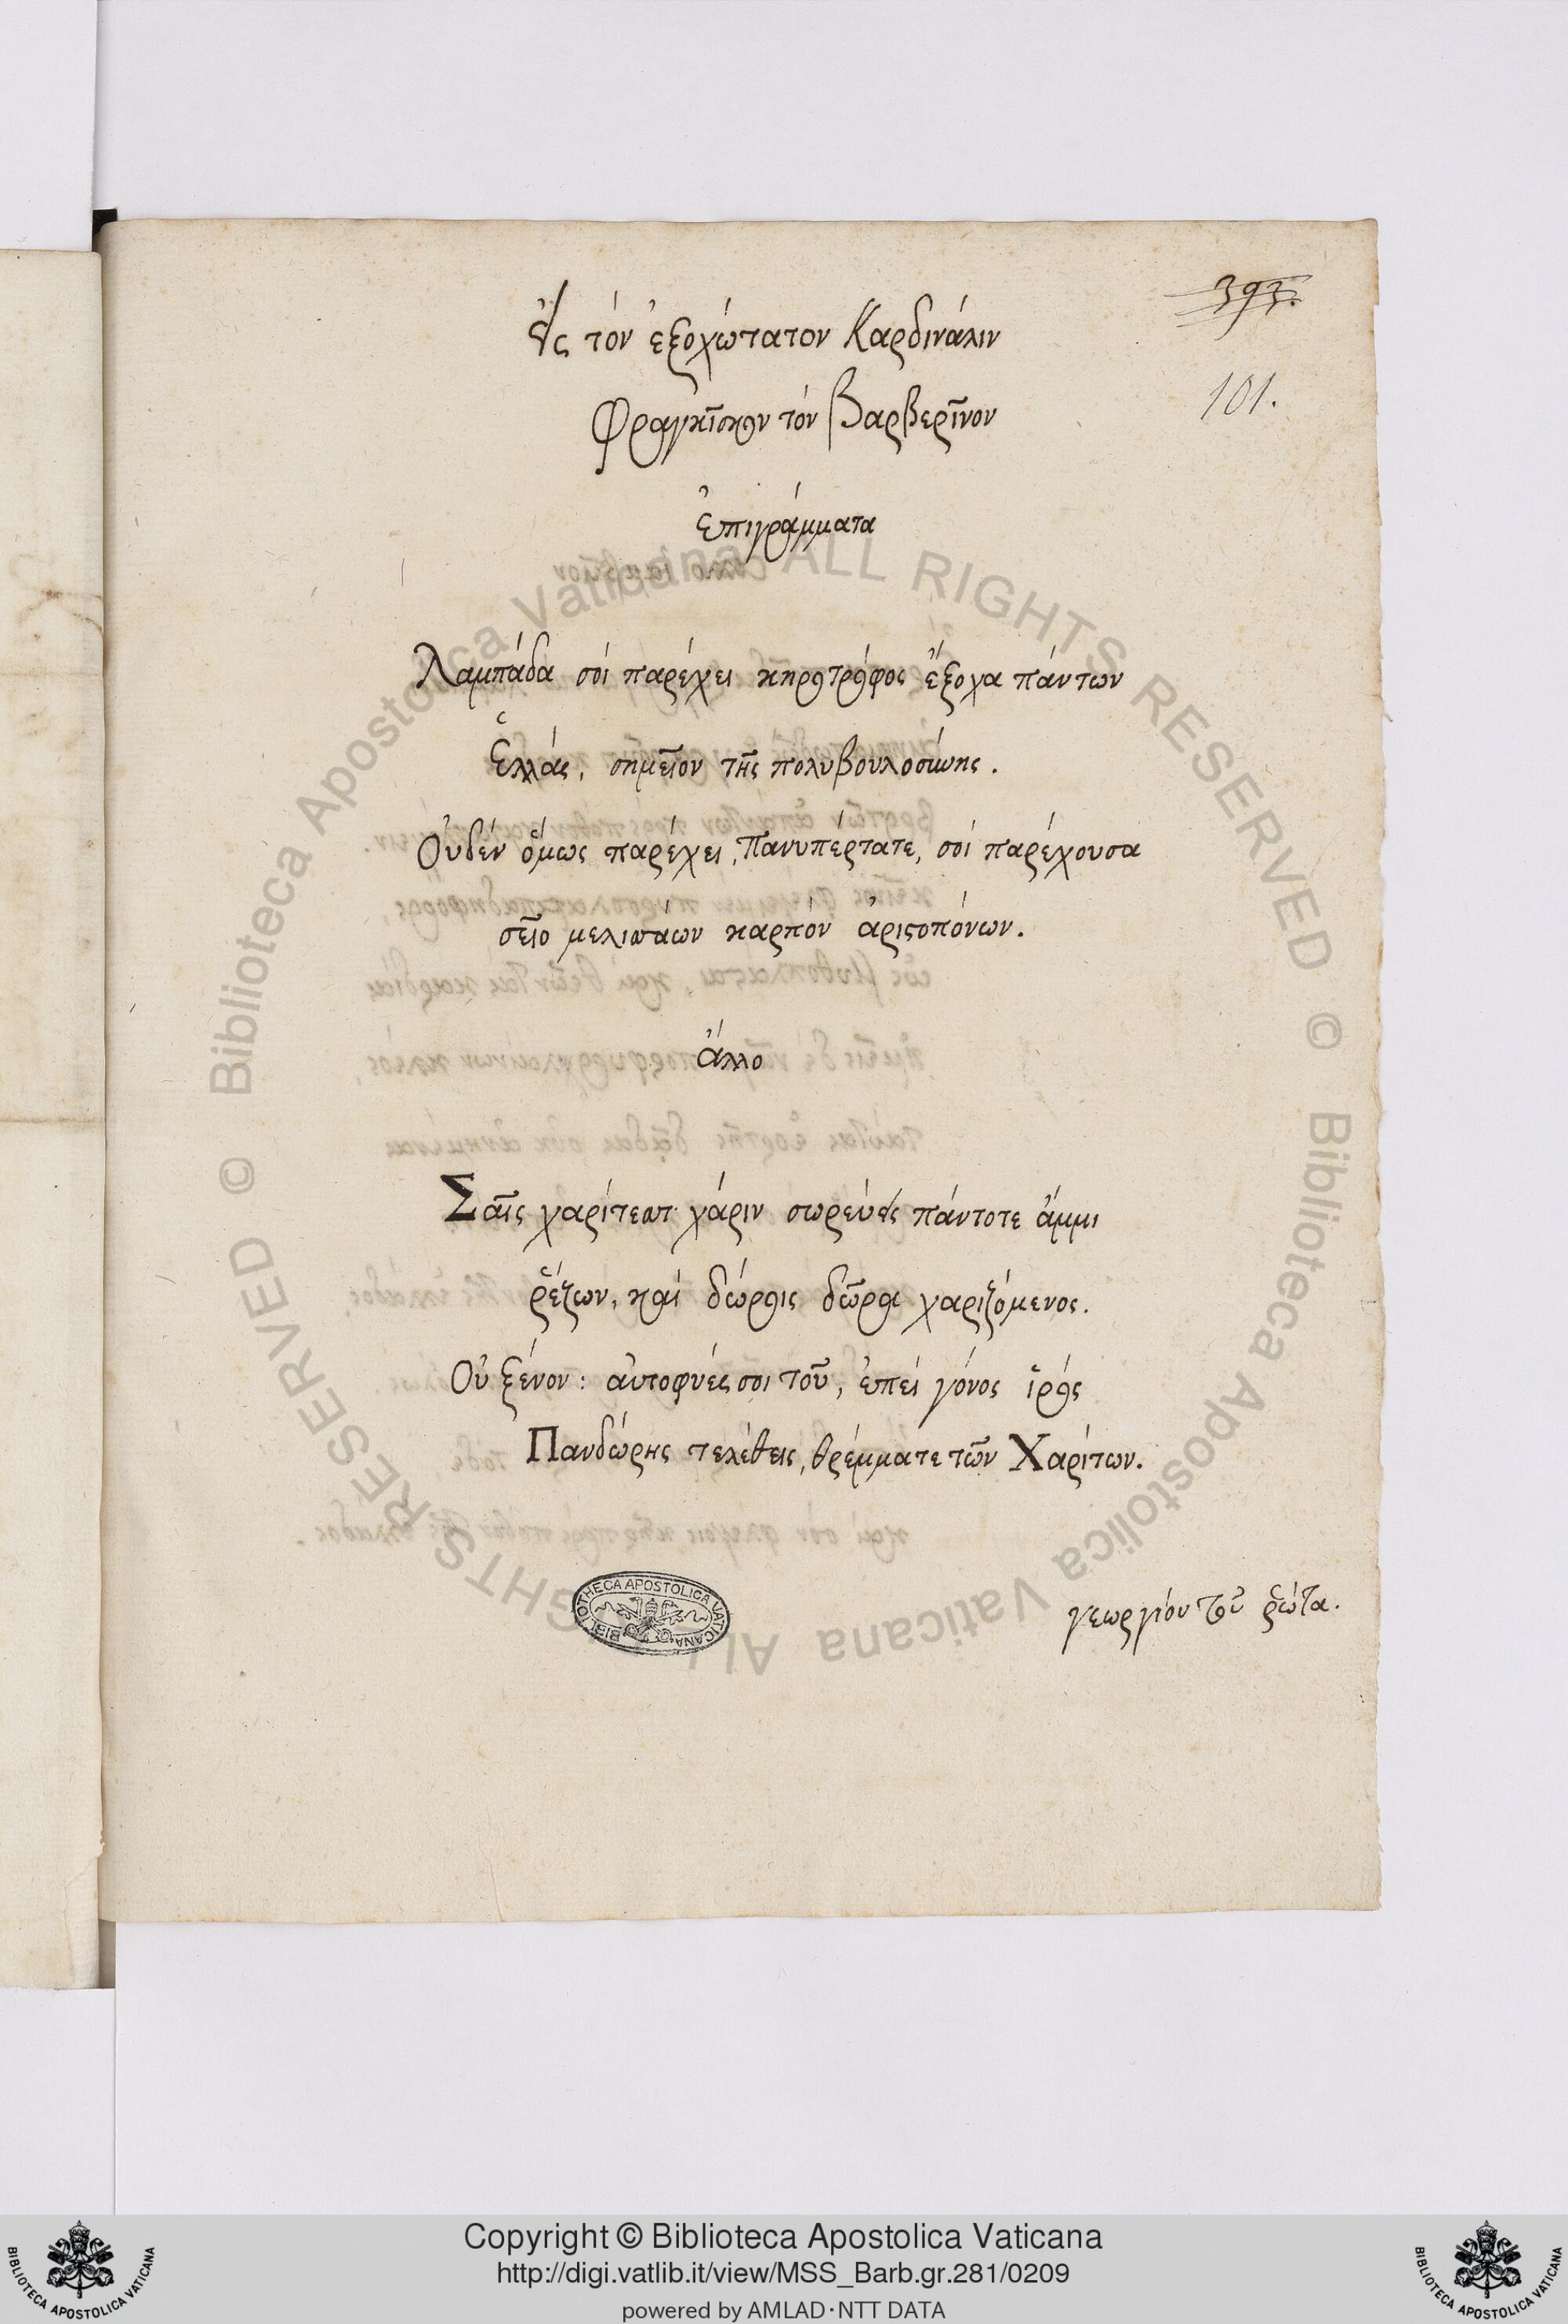 393.
101.
εἰς τὸν ἐξοχώτατον Καρδινάλιν
Φραγκῖσκον τὸν Βαρβερῖνον
ἐπιγράμματα
Λαμπάδα σοὶ παρέχει κηροτρόφος ἔξοχα πάντων
Ἑλλάς, σημεῖον τῆς πολυβουλοσύνης.
Οὐδὲν ὅμως παρέχει, Πανυπέρτατε, σοὶ παρέχουσα
σεῖο μελισσάων καρπὸν ἀριστοπόνων.
ἄλλο
Σαῖς χαρίτεσσι χάριν σωρεύεις πάντοτε ἄμμι
ῥέζων, καὶ δώροις δῶρα χαριζόμενος.
Οὐ ξένον: αὐτοφυές σοι τοῦ, ἐπεὶ γόνος ἱρός
Πανδώρης τελέθεις, θρέμματε τῶν Χαρίτων.
γεωργίου τοῦ ῥώτα.
BIBLIOTHECA APOSTOLICA VATICANA
© Biblioteca Apostolica Vaticana ALL RIGHTS RESERVED © Biblioteca Apostolica Vaticana ALL RIGHTS RESERVED
Copyright © Biblioteca Apostolica Vaticana
http://digi.vatlib.it/view/MSS_Barb.gr.281/0209
powered by AMLAD·NTT DATA
BIBLIOTECA APOSTOLICA VATICANA
BIBLIOTECA APOSTOLICA VATICANA